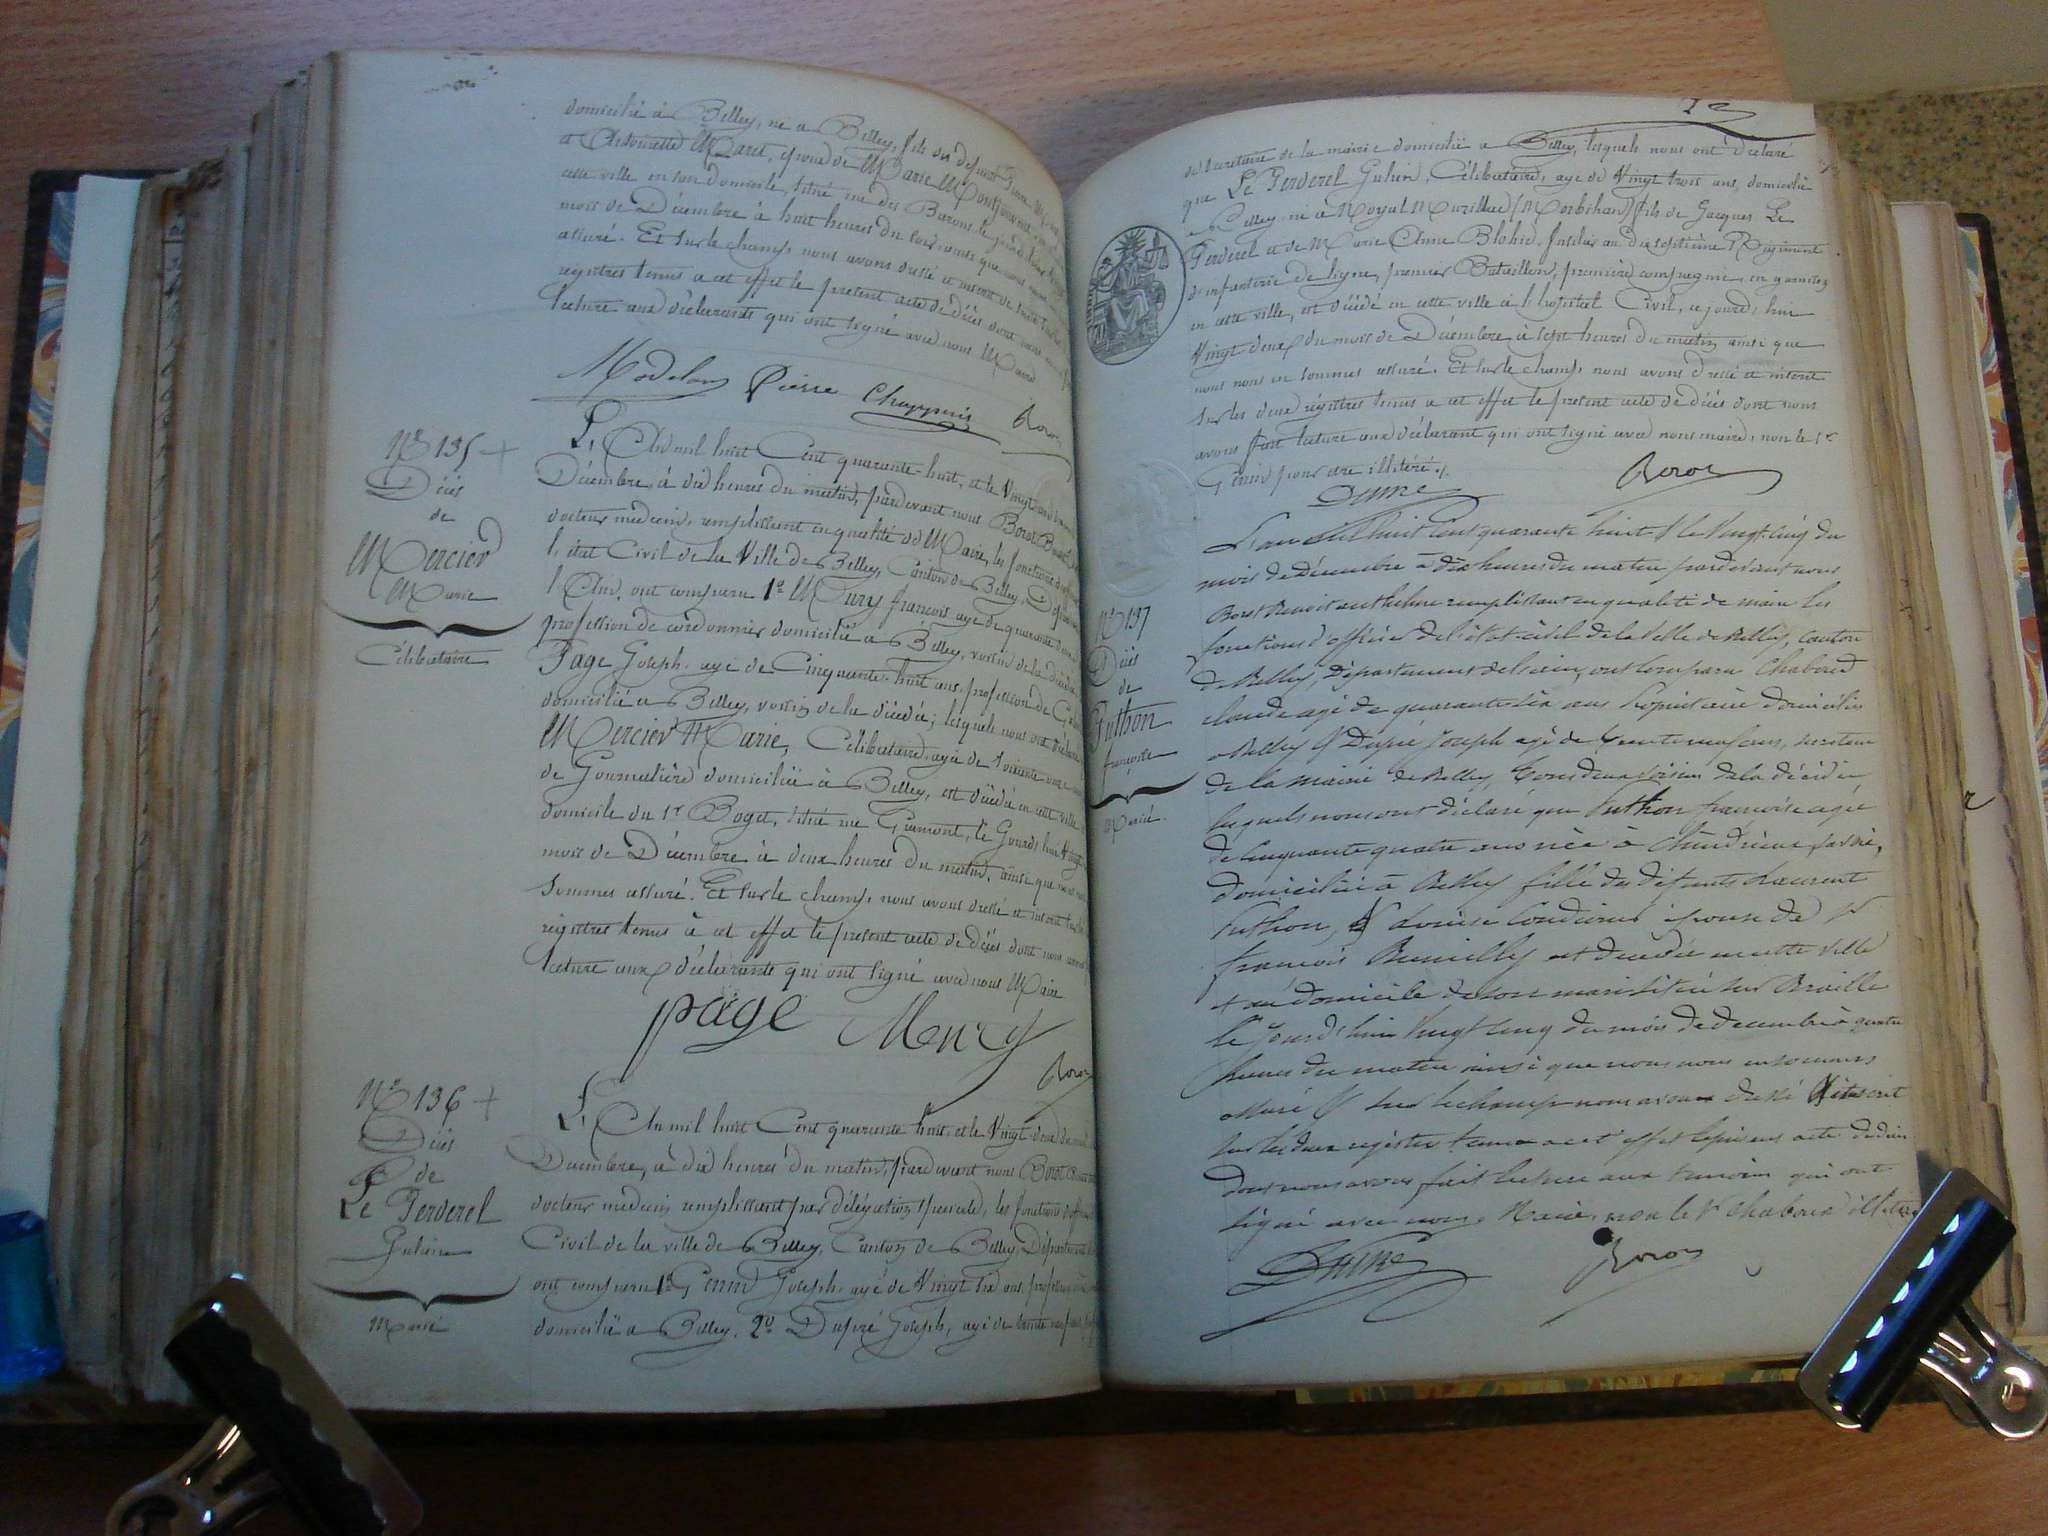 domicilié à Belley, né à Belley, fils de défunt Pierre
et Antoinette Maret, époux de Marie
cette ville en son domicile, situé rue des Barons, le jourd'hui
mois de Décembre à huit heures du soir ainsi que nous nous
assuré. Et sur le champ nous avons dressé et inscrit de suite sur les
registres tenus a cet effet le present acte de décès dont nous
lecture aux déclarants qui ont signé avec nous Maire
Modelon Pierre Chappuis Boror
N° 135
Décès
de
Mercier
Marie
Célibataire
L'An mil huit Cent quarante-huit, et le Vingt
Décembre, à dix heures du matin, pardevant nous Borot
docteur médecin, remplissant en qualité de Maire, les fonctions
l'état Civil de la Ville de Belley, Canton de Belley,
l'Ain, ont comparu 1° Mury françois agé de quarante
profession de cordonnier domicilié à Belley, voisin de la décédée
Page Joseph, agé de Cinquante-huit ans, profession de
domicilié a Belley, voisin de la décédée; lesquels nous ont déclaré
Mercier Marie, Célibataire, agée de soixante onze
de Journalière domiciliée à Belley, est décédée en cette ville
domicile du Sr Boget, situé rue le Jourd'hui Vingt
mois de Décembre à deux heures du matin, ainsi que nous nous
sommes assuré. Et sur le champ nous avons dressé et inscrit sur les
registres tenus à cet effet le present acte de décès dont nous avons
lecture aux déclarants qui ont signé avec nous Maire
page Mury
Boror
N° 136
Décès
de
Le Perderel
Julien
Marié
L'An mil huit Cent quarante huit, et le Vingt deux du mois
Décembre, à dix heures du matin, pardevant nous Borot
docteur médecin remplissant par délégation spéciale, les fonctions
Civil de la ville de Belley, Canton de Belley, Département
ont comparu 1° Genin Joseph, agé de Vingt six ans, profession
domicilié a Belley. 2° Dupré Joseph, agé de trente neuf ans
de secrétaire de la mairie domicilié a Belley, lesquels nous ont déclaré
que Le Perderel Julien, Célibataire, agé de Vingt trois ans, domicilié
a Belley né à Noyal Muzillac (Morbihan) fils de Jacques Le
Perderel et de Marie Anne Blohic, fusilier au dix septième Régiment
d'infanterie de ligne, premier Bataillon, première compagnie, en garnison
en cette ville, est décédé en cette ville à l'hopital Civil, ce jourd'hui
Vingt deux du mois de Décembre à sept heures du matin ainsi que
nous nous en sommes assuré. Et sur le champ nous avons dressé et inscrit
sur les deux régistres tenus a cet effet le present acte de décès dont nous
avons fait lecture aux déclarant qui ont signé avec nous maire, non le Sr
Genin pour être illitéré.
Dupré Boror
N° 137
Décès
de
Guthon
françoise
Marié.
L'an mil huit cent quarante huit & le vingt-cinq du
mois de Décembre à dix heures du matin pardevant nous
Borot Benoit anthelme remplissant en qualité de maire les
fonctions d'officier de l'état civil de la ville de Belley, Canton
de Belley, Département de l'ain, ont comparu Chaboud
claude agé de quarante six ans domicilié
a Belley & Dupré Joseph agé de trente neuf ans, secrétaire
de la mairie de Belley, tous deux voisins de la décédée
lesquels nous ont déclaré que Guthon françoise agée
de cinquante quatre ans née à Chindrieux, savoie,
domiciliée à Belley fille des défunts Laurent
Guthon, & Louise épouse de Sr
françois Rumilly est decédée en cette ville
au domicile de son mari situé sur
le Jourd'hui vingt cinq du mois de decembre à quatre
heures du matin ainsi que nous nous en sommes
assuré & sur le champ nous avons dressé & inscrit
sur les deux régistres tenus a cet effet le présent acte de décès
dont nous avons fait lecture aux témoins qui ont
signé avec nous Maire, non le Sr Chaboud illitéré
Dupré Boror